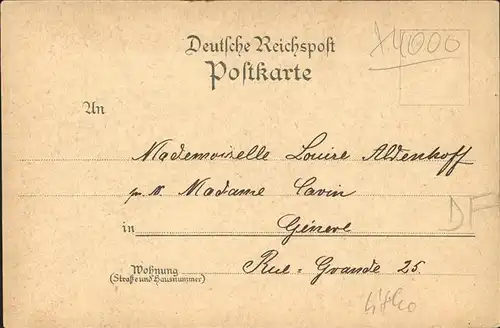 Deutsche Reichspost
Postkarte
An
Mademoiselle Louise Aldenhoff
Madame Cavin
in Génève
Wohnung
(Straße und Hausnummer)
Rue-Grande 25.
DF